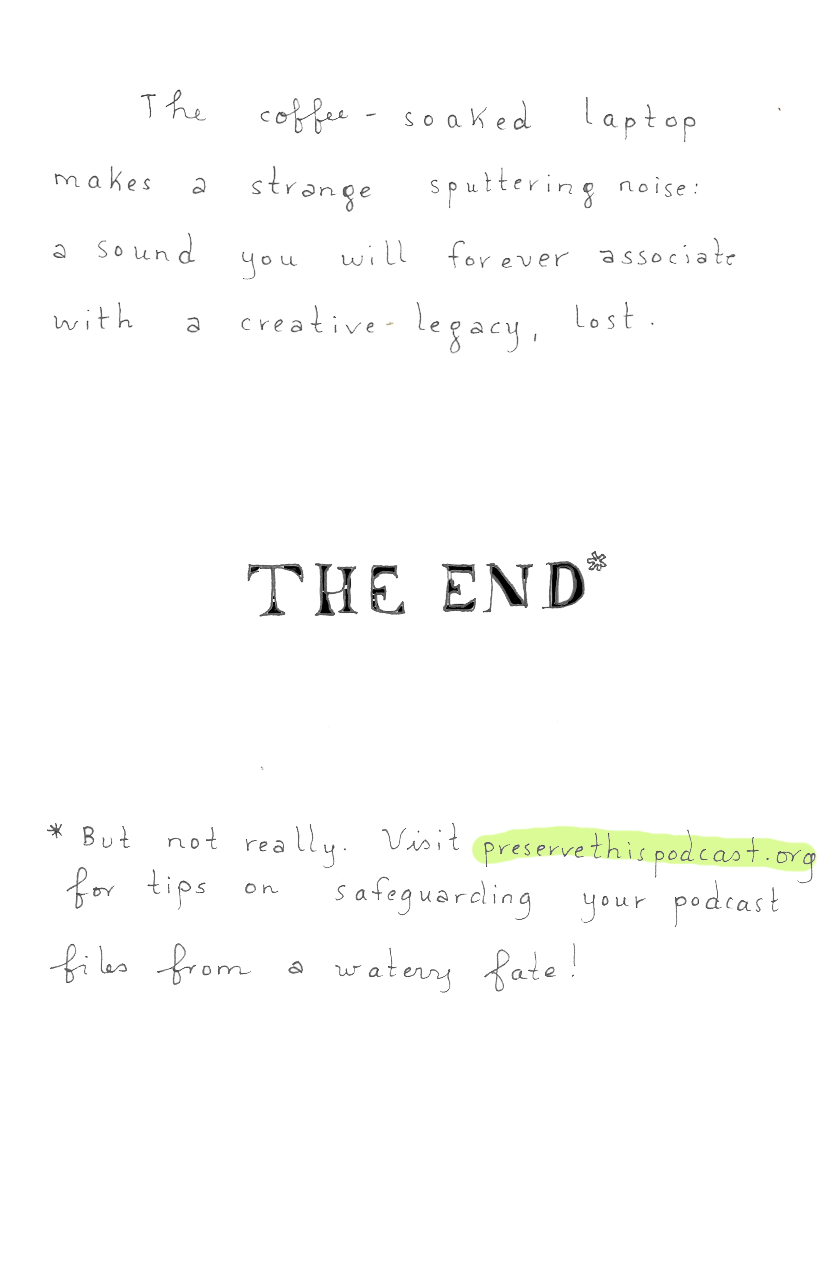 The coffee-soaked laptop
makes a strange sputtering noise:
a sound you will forever associate
with a creative-legacy, lost.
THE END*
* But not really. Visit preservethispodcast.org
for tips on safeguarding your podcast
files from a watery fate!